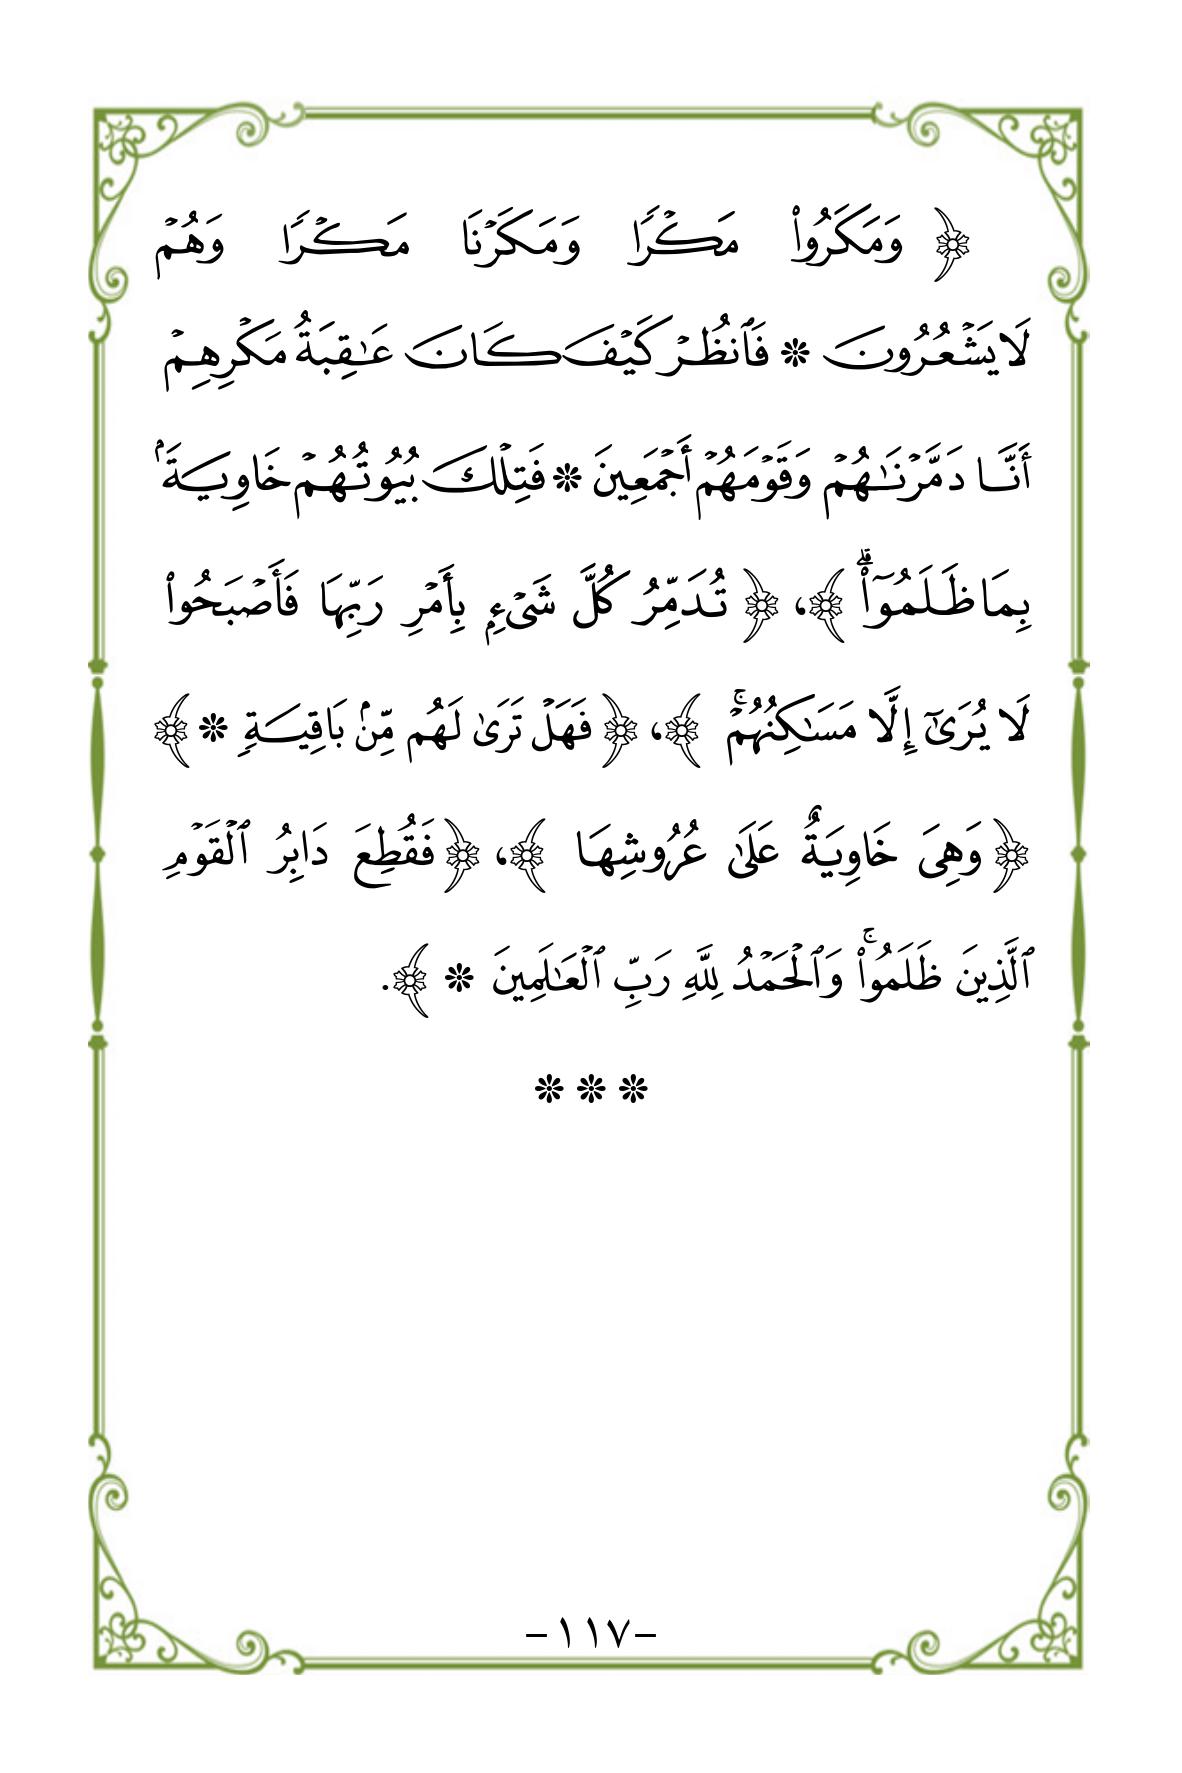 ﴿ وَمَكَرُوا۟ مَكۡرًا وَمَكَرۡنَا مَكۡرًا وَهُمۡ
لَا يَشۡعُرُونَ ❊ فَٱنظُرۡ كَيۡفَ كَانَ عَـٰقِبَةُ مَكۡرِهِمۡ
أَنَّا دَمَّرۡنَـٰهُمۡ وَقَوۡمَهُمۡ أَجۡمَعِينَ ❊ فَتِلۡكَ بُيُوتُهُمۡ خَاوِيَةَۢ
بِمَا ظَلَمُوٓا۟ۗ ﴾، ﴿ تُدَمِّرُ كُلَّ شَىۡءِۭ بِأَمۡرِ رَبِّهَا فَأَصۡبَحُوا۟
لَا يُرَىٰٓ إِلَّا مَسَـٰكِنُهُمۡۚ ﴾، ﴿ فَهَلۡ تَرَىٰ لَهُم مِّنۢ بَاقِيَةٍ ❊ ﴾
﴿ وَهِىَ خَاوِيَةٌ عَلَىٰ عُرُوشِهَا ﴾، ﴿ فَقُطِعَ دَابِرُ ٱلۡقَوۡمِ
ٱلَّذِينَ ظَلَمُوا۟ۚ وَٱلۡحَمۡدُ لِلَّهِ رَبِّ ٱلۡعَـٰلَمِينَ ❊ ﴾.
❊ ❊ ❊
–١١٧–